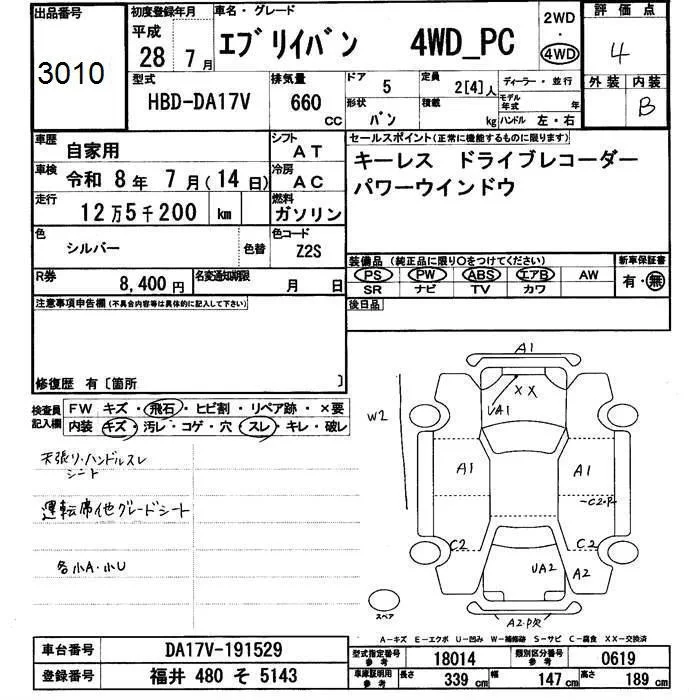 出品番号
3010
初度登録年月
平成
28 7 月
車名・グレード
エブリイバン 4WD_PC
2WD
・
4WD
評価点
4
外装 内装
B
型式
HBD-DA17V
排気量
660
CC
ドア
5
定員
2[4]人
ディーラー・並行
モデル年式 年
形状
バン
積載
kg
ハンドル 左・右
車歴
自家用
シフト
AT
車検
令和 8 年 7 月(14 日)
冷房
AC
走行
12 万 5 千 200 km
燃料
ガソリン
色
シルバー
色替
色コード
Z2S
R券
8,400 円
名変通知期限
月 日
セールスポイント(正常に機能するものに限ります)
キーレス ドライブレコーダー
パワーウインドウ
装備品 (純正品に限り〇をつけてください)
PS PW ABS エアB AW
SR ナビ TV カワ
新車保証書
有・無
後日品
注意事項申告欄(不具合内容等は具体的に記入して下さい)
修復歴 有〔箇所 〕
検査員
記入欄
FW キズ・飛石・ヒビ割・リペア跡・×要
内装 キズ・汚レ・コゲ・穴・スレ・キレ・破レ
天張り・ハンドルスレ
シート
運転席他グレードシート
各小A・小U
A1
XX
UA1
W2
A1
A1
C2・P
C2
C2
UA2
A2
A2・P欠
スペア
A-キズ E-エクボ U-凹み W-補修跡 S-サビ C-腐食 XX-交換済
車台番号
DA17V-191529
登録番号
福井 480 そ 5143
型式指定番号
参考
18014
類別区分番号
参考
0619
車庫証明用
参考
長さ
339 cm
幅
147 cm
高さ
189 cm